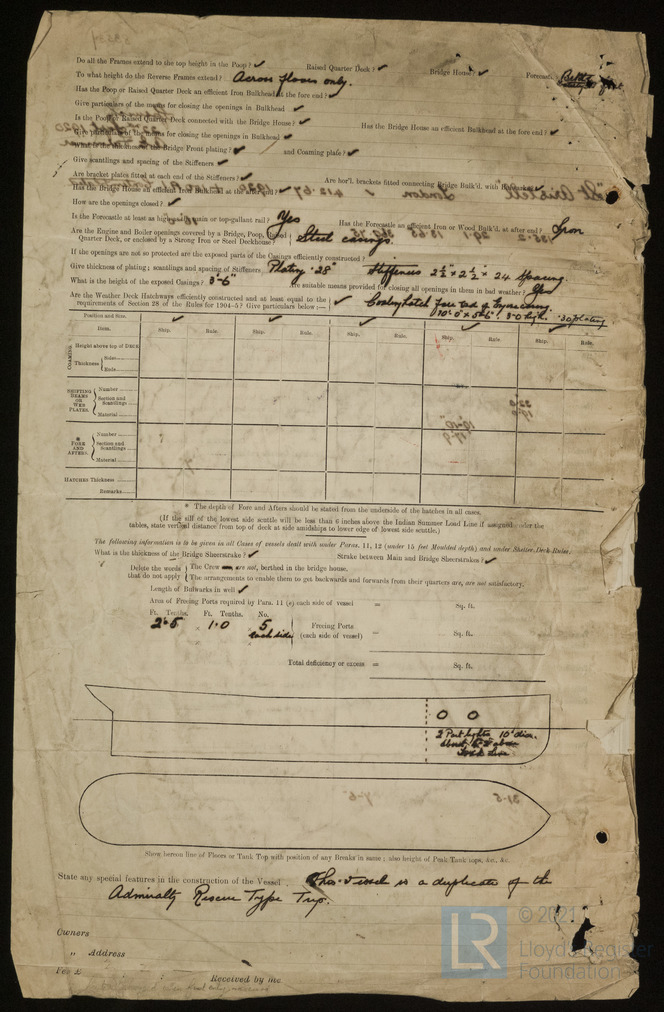 Do all the Frames extend to the top height in the Poop? ✓ Raised Quarter Deck? ✓ Bridge House? ✓ Forecastle
To what height do the Reverse Frames extend? Across floors only.
Has the Poop or Raised Quarter Deck an efficient Iron Bulkhead at the fore end? ✓
Give particulars of the means for closing the openings in Bulkhead ✓
Is the Poop or Raised Quarter Deck connected with the Bridge House? ✓ Has the Bridge House an efficient Bulkhead at the fore end? ✓
Give particulars of the means for closing the openings in Bulkhead ✓
What is the thickness of the Bridge Front plating? ✓ and Coaming plate? ✓
Give scantlings and spacing of the Stiffeners ✓
Are bracket plates fitted at each end of the Stiffeners? ✓ Are hor'l. brackets fitted connecting Bridge Bulk'd. with
Has the Bridge House an efficient Iron Bulkhead at the after end? ✓
How are the openings closed? ✓
Is the Forecastle at least as high as the main or top-gallant rail? Yes Has the Forecastle an efficient Iron or Wood Bulk'd. at after end? Iron
Are the Engine and Boiler openings covered by a Bridge, Poop, Raised
Quarter Deck, or enclosed by a Strong Iron or Steel Deckhouse? Steel casings.
If the openings are not so protected are the exposed parts of the Casings efficiently constructed?
Give thickness of plating; scantlings and spacing of Stiffeners Plating ·28" Stiffeners 2½" x 2½" x 24 Spacing.
What is the height of the exposed Casings? 3'-6" Are suitable means provided for closing all openings in them in bad weather? Yes
Are the Weather Deck Hatchways efficiently constructed and at least equal to the
requirements of Section 28 of the Rules for 1904-5? Give particulars below:— ✓
·30 plating
Position and Size.
Item. Ship. Rule. Ship. Rule. Ship. Rule. Ship. Rule. Ship. Rule.
COAMING Height above top of DECK
Thickness Sides
Ends
SHIFTING BEAMS OR WEB PLATES. Number
Section and Scantlings
Material
* FORE AND AFTERS. Number
Section and Scantlings
Material
HATCHES Thickness
Remarks
* The depth of Fore and Afters should be stated from the underside of the hatches in all cases.
(If the sill of the lowest side scuttle will be less than 6 inches above the Indian Summer Load Line if assigned under the
tables, state vertical distance from top of deck at side amidships to lower edge of lowest side scuttle.)
The following information is to be given in all Cases of vessels dealt with under Paras. 11, 12 (under 15 feet Moulded depth) and under Shelter Deck Rules:
What is the thickness of the Bridge Sheerstrake? ✓ Strake between Main and Bridge Sheerstrakes? ✓
Delete the words that do not apply { The Crew are, are not, berthed in the bridge house.
The arrangements to enable them to get backwards and forwards from their quarters are, are not satisfactory.
Length of Bulwarks in well ✓
Area of Freeing Ports required by Para. 11 (e) each side of vessel = Sq. ft.
Ft. Tenths. Ft. Tenths. No.
2·5 × 1·0 5 each side Freeing Ports (each side of vessel) = Sq. ft.
Total deficiency or excess = Sq. ft.
2 Port lights 10" dia.
Show hereon line of Floors or Tank Top with position of any Breaks in same; also height of Peak Tank tops, &c., &c.
State any special features in the construction of the Vessel. This vessel is a duplicate of the
Admiralty Rescue Type Tugs.
Owners
„ Address
Fee £ Received by me
© 2021
LR
Lloyd's Register
Foundation